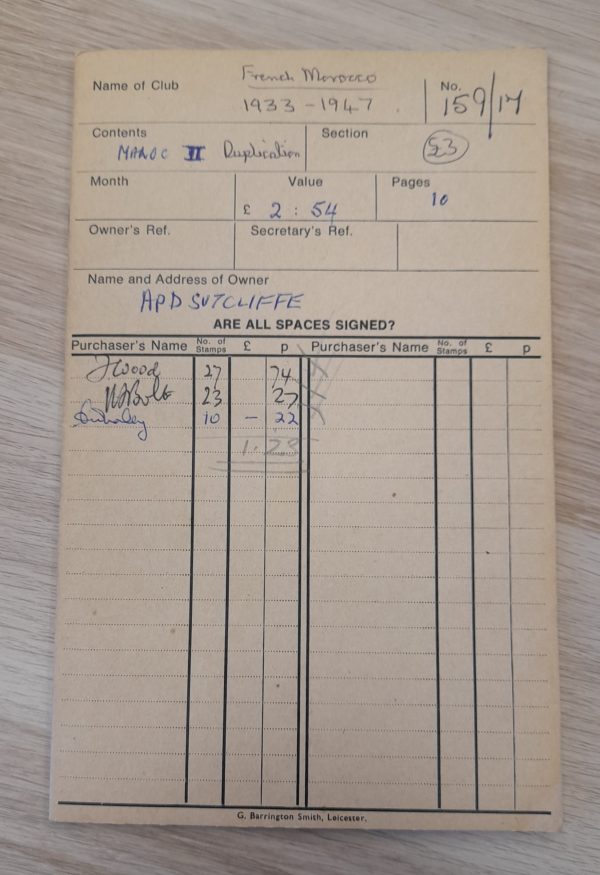 Name of Club French Morocco No.
1933 - 1947 159/17
Contents Section
MAROC II Duplication £3
Month Value Pages
£ 2 : 54 10
Owner's Ref. Secretary's Ref.
Name and Address of Owner
APD SUTCLIFFE
ARE ALL SPACES SIGNED?
Purchaser's Name No. of Stamps £ p Purchaser's Name No. of Stamps £ p
Wood 27 74
23 27
10 - 22
1.23
G. Barrington Smith, Leicester.